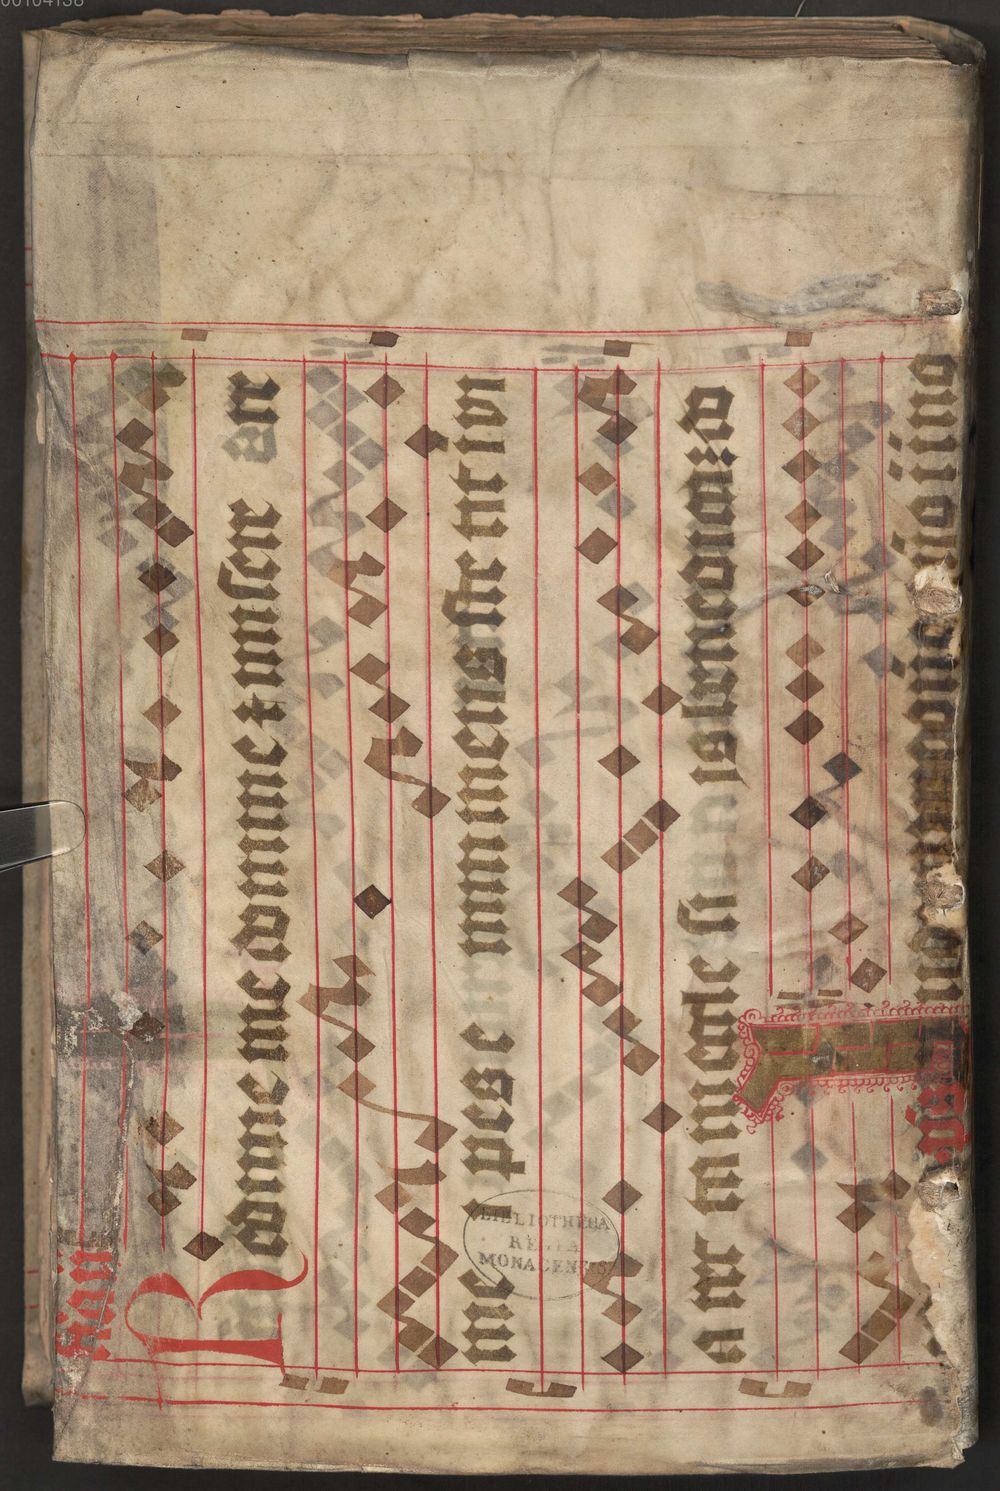 00104138
Redime me domine et misere re
mei pes e nim meus ste tit in vi
a rec ta in eccle sy is benedicam do
Iudica me domine
BIBLIOTHECA
REGIA
MONACENSIS